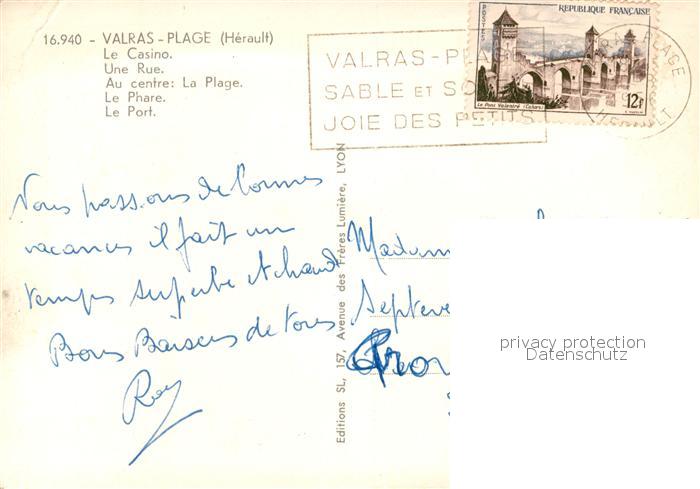 16.940 - VALRAS-PLAGE (Hérault)
Le Casino.
Une Rue.
Au centre: La Plage.
Le Phare.
Le Port.
VALRAS-PL
SABLE ET SO
JOIE DES PETITS
POSTES
REPUBLIQUE FRANÇAISE
Le Pont Valentré (Cahors)
12F
PLAGE
HERAULT
Nous passons de bonnes
vacances il fait un
temps superbe et chaud
Bons Baisers de tous
Editions SL, 157, Avenue des Frères Lumière, LYON
Madam
Septeve
privacy protection
Datenschutz